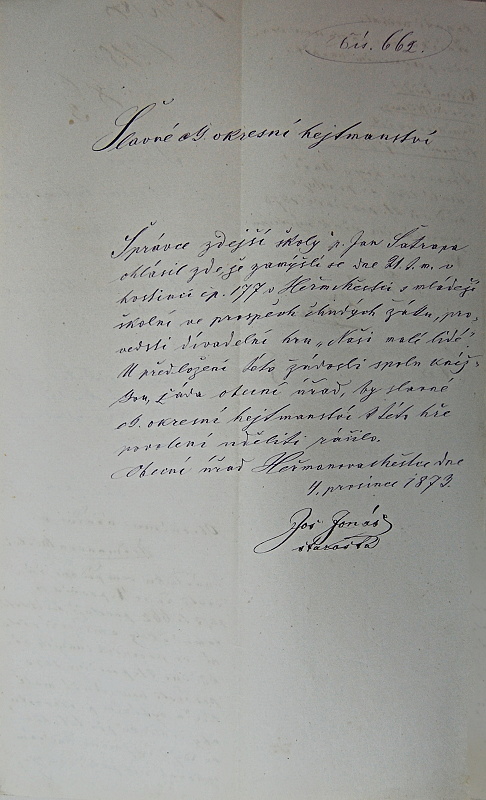 čís. 662.
Slavné c. okresní hejtmanství
Správce zdejší školy p. Jan Šatrapa
ohlásil zde, že zamýšlí se dne 21. t. m. v
hostinci čp. 177 v Heřm. Městci s mládeží
školní ve prospěch chudých žáků, pro-
vedsti divadelní hru „Naši malí lidé“.
U předložení této žádosti spolu kníž-
kou, žádá obecní úřad, by slavné
okresní hejtmanství k této hře
povolení uděliti ráčilo.
Obecní úřad Heřmanova Městce dne
4. prosince 1873.
Jos Jonáš
starosta